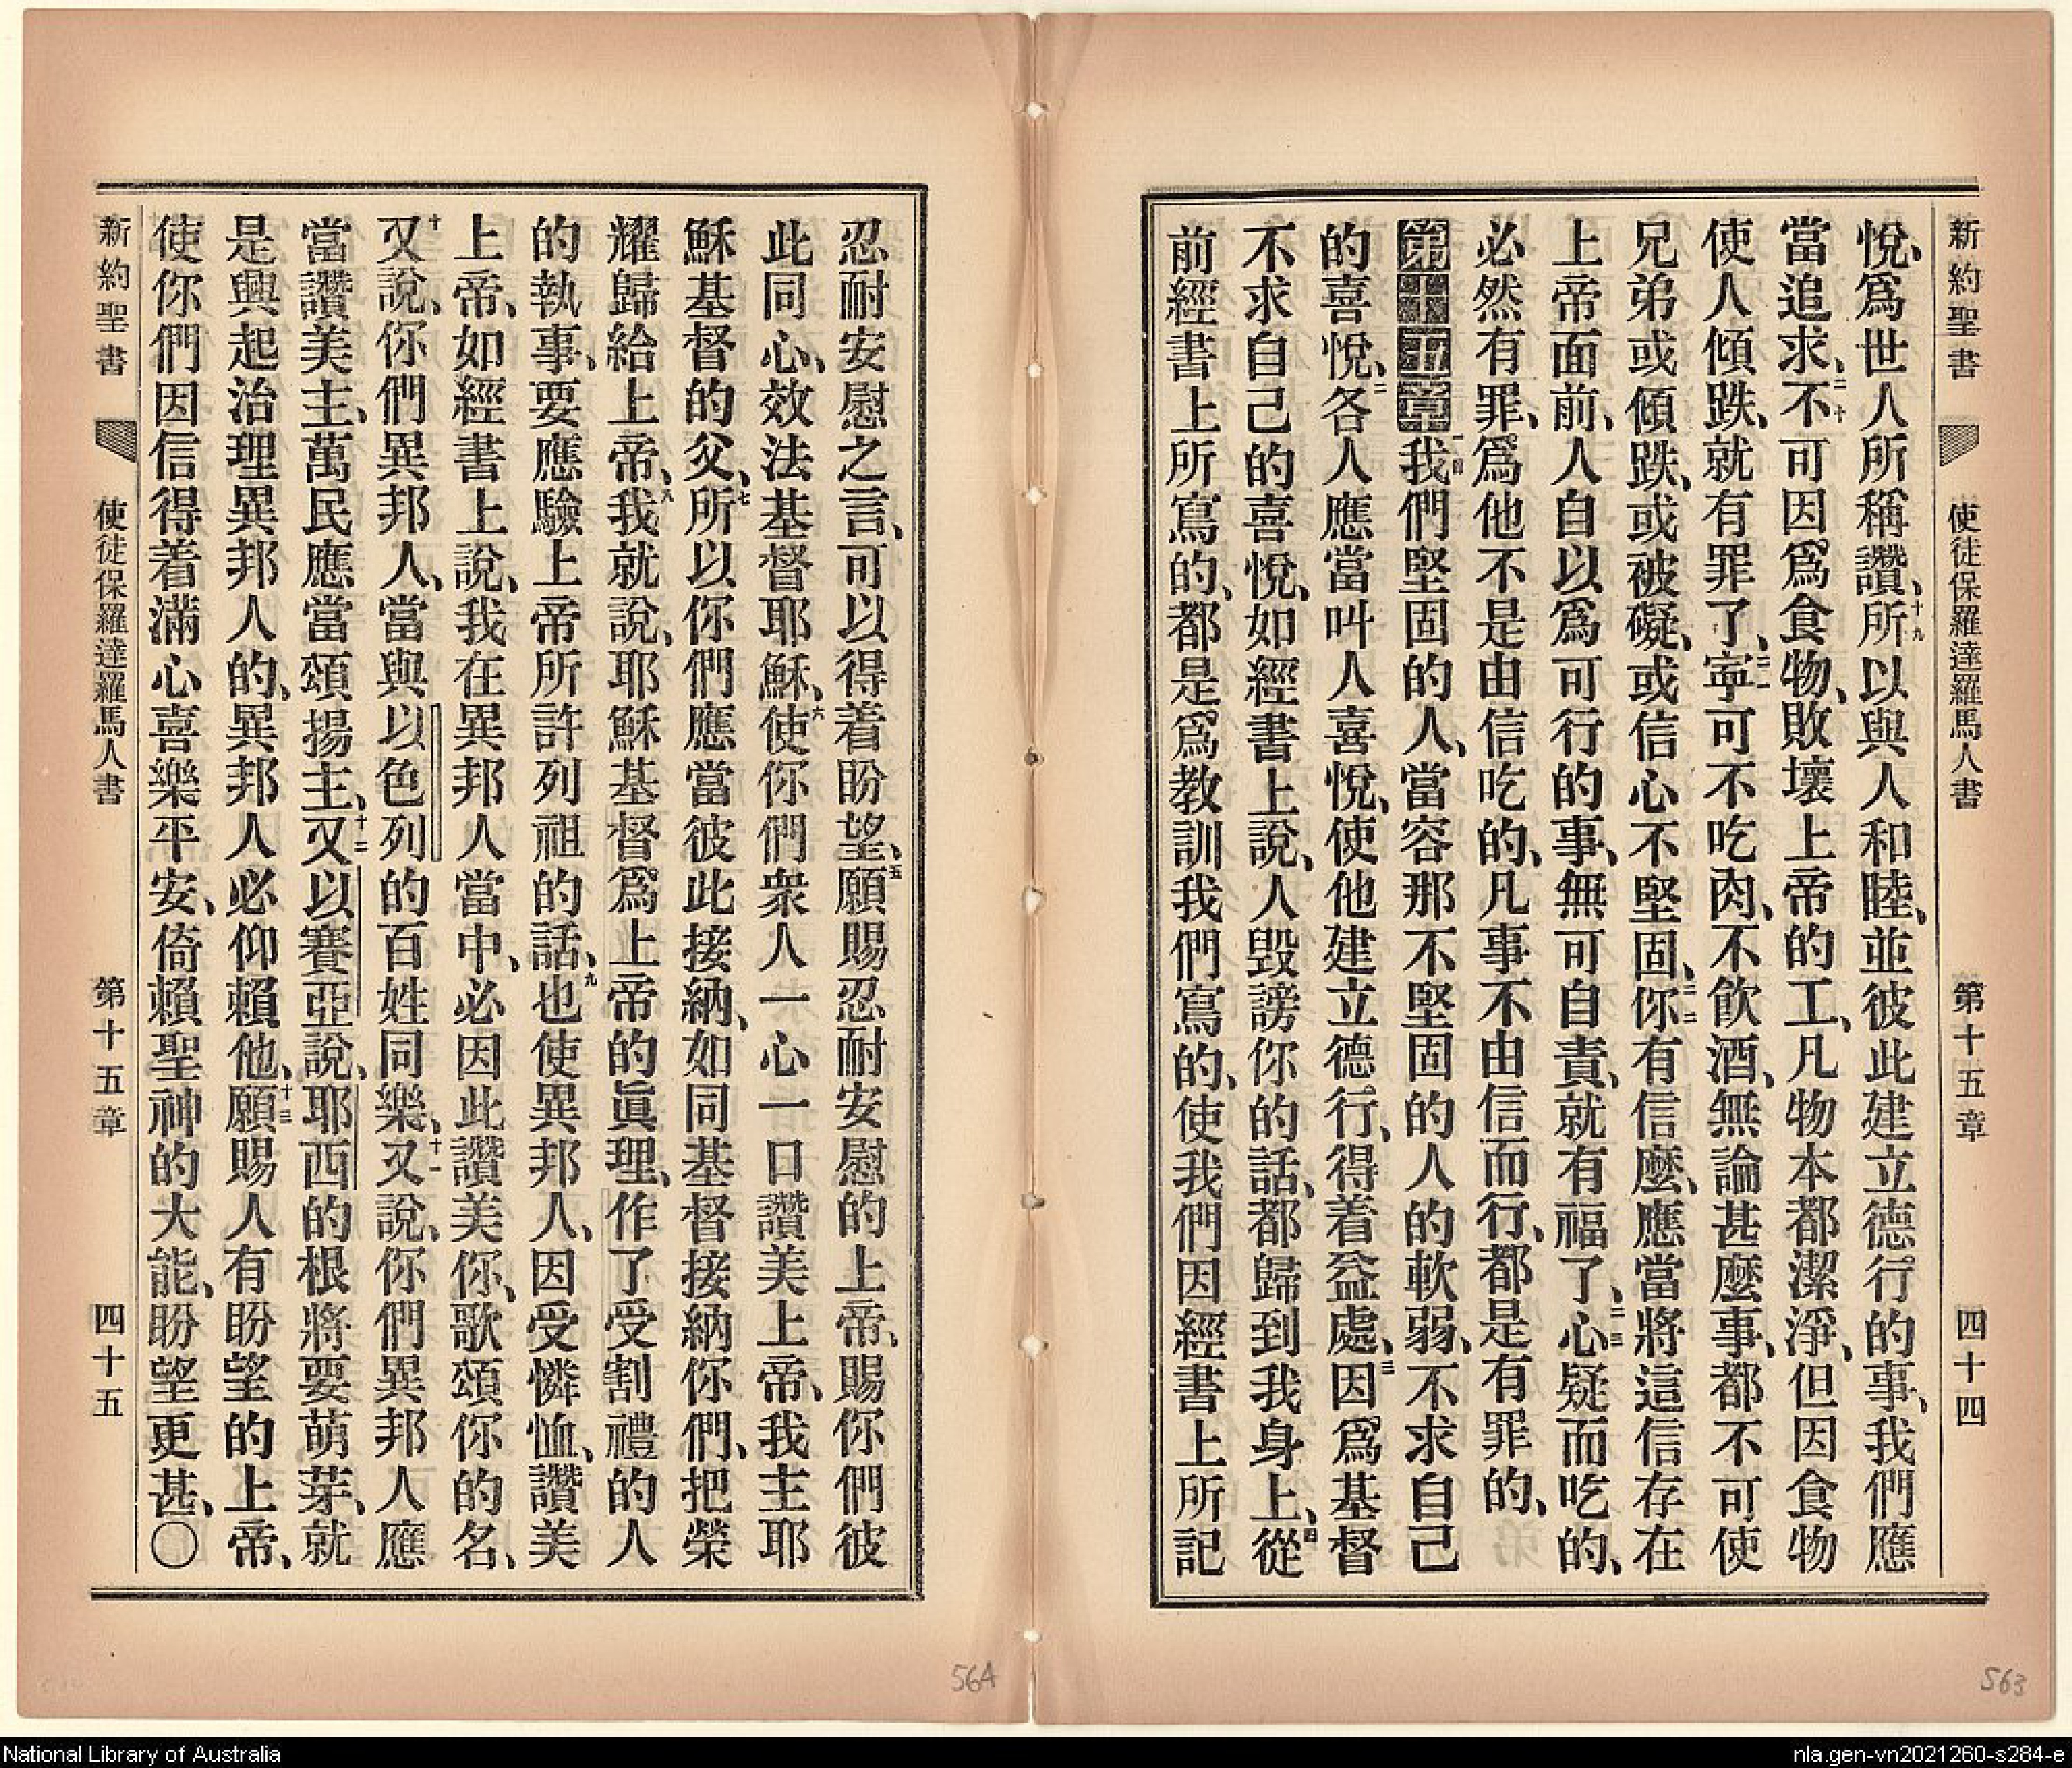 新約聖書 使徒保羅達羅馬人書 第十五章 四十四
悅、爲世人所稱讚、十九所以與人和睦、並彼此建立德行的事、我們應
當追求、二十不可因爲食物、敗壞上帝的工、凡物本都潔淨、但因食物
使人傾跌、就有罪了、二一寧可不吃肉、不飲酒、無論甚麼事、都不可使
兄弟或傾跌、或被礙、或信心不堅固、二二你有信麼、應當將這信存在
上帝面前、人自以爲可行的事、無可自責、就有福了、二三心疑而吃的、
必然有罪、爲他不是由信吃的、凡事不由信而行、都是有罪的、
第十五章一節我們堅固的人、當容那不堅固的人的軟弱、不求自己
的喜悅、二各人應當叫人喜悅、使他建立德行、得着益處、三因爲基督
不求自己的喜悅、如經書上說、人毀謗你的話、都歸到我身上、四從
前經書上所寫的、都是爲教訓我們寫的、使我們因經書上所記
忍耐安慰之言、可以得着盼望、五願賜忍耐安慰的上帝、賜你們彼
此同心、效法基督耶穌、六使你們衆人一心一口讚美上帝、我主耶
穌基督的父、七所以你們應當彼此接納、如同基督接納你們、把榮
耀歸給上帝、八我就說、耶穌基督爲上帝的眞理、作了受割禮的人
的執事、要應驗上帝所許列祖的話、九也使異邦人、因受憐恤、讚美
上帝、如經書上說、我在異邦人當中、必因此讚美你、歌頌你的名、
十又說、你們異邦人、當與以色列的百姓同樂、十一又說、你們異邦人應
當讚美主、萬民應當頌揚主、十二又以賽亞說、耶西的根將要萌芽、就
是興起治理異邦人的、異邦人必仰賴他、十三願賜人有盼望的上帝、
使你們因信得着滿心喜樂平安、倚賴聖神的大能、盼望更甚、〇
新約聖書 使徒保羅達羅馬人書 第十五章 四十五
564
563
National Library of Australia
nla.gen-vn2021260-s284-e